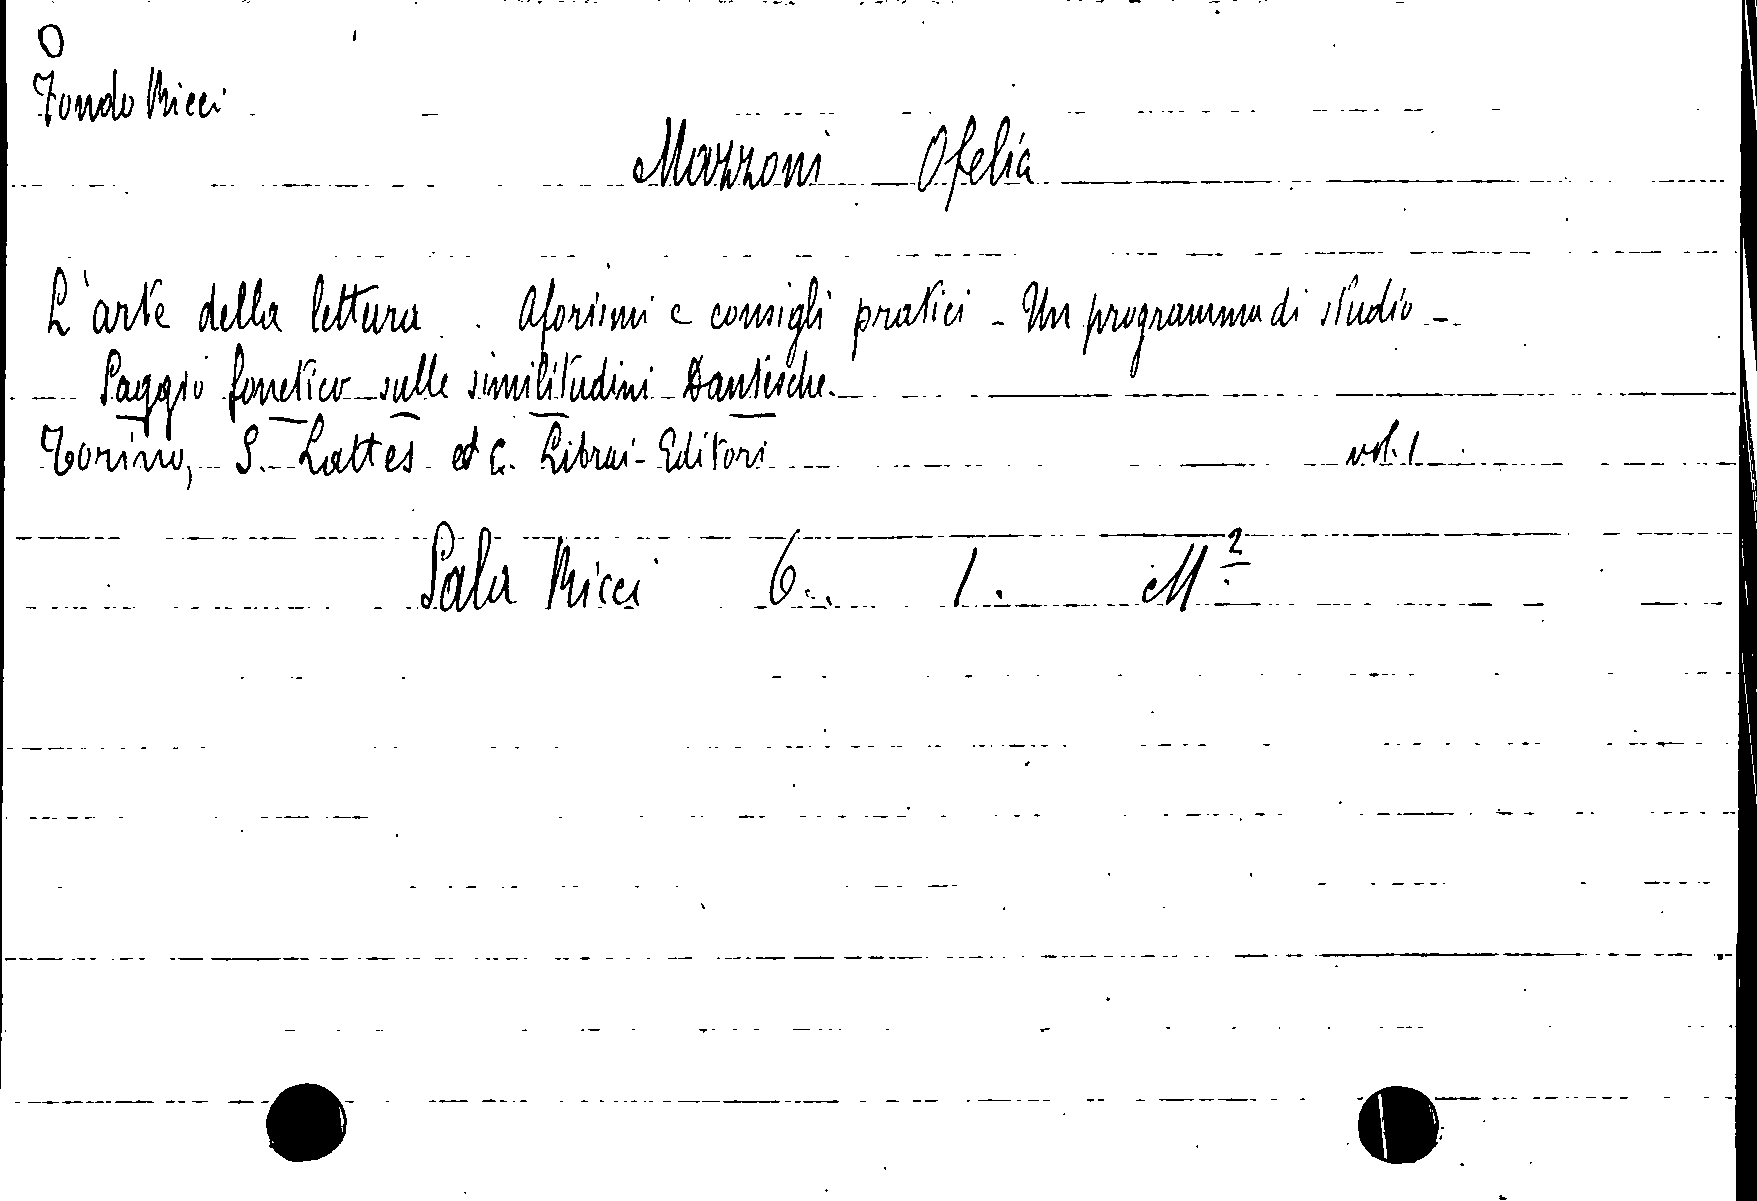 O
Fondo Ricci
Mazzoni Ofelia
L'arte della lettura. Aforismi e consigli pratici - Un programma di studio -
Saggio fonetico sulle similitudini Dantesche.
Torino, S. Lattes et C. Librai-Editori vol. 1
Sala Ricci 6. 1. M²